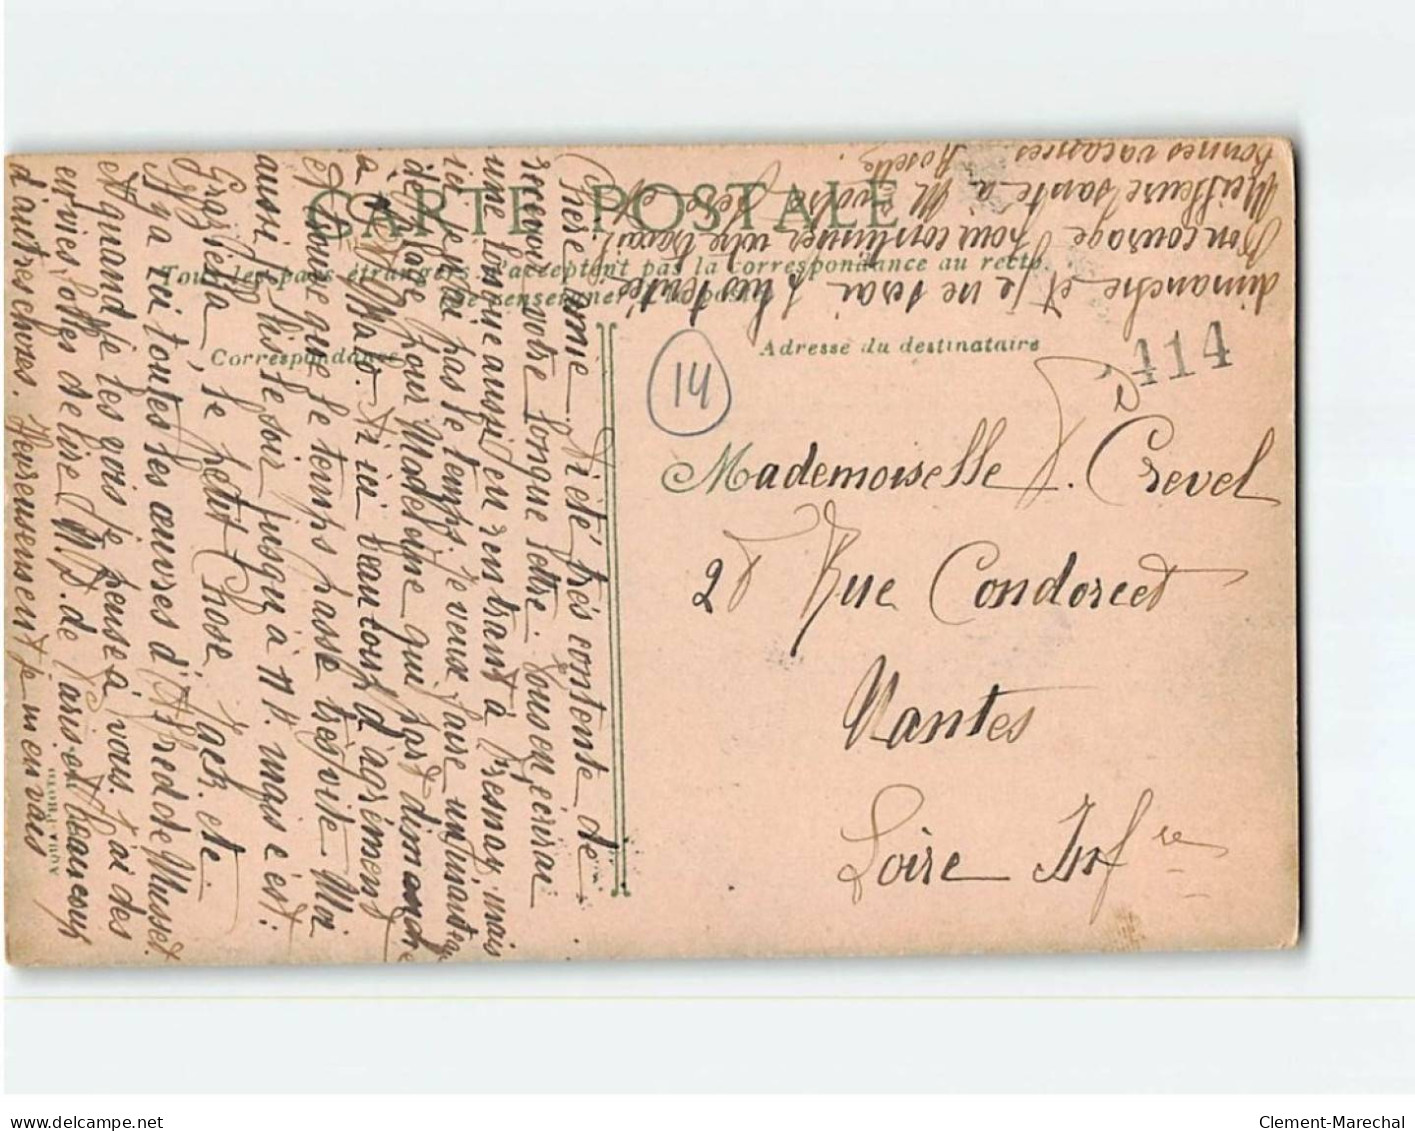 CARTE POSTALE
Tous les pays étrangers n'acceptent pas la correspondance au recto.
Se renseigner à la poste
Correspondance
Adresse du destinataire
14
414
Mademoiselle Y. Crevel
2 Rue Condorcet
Nantes
Loire Infre
Chère amie, J'ai été très contente de
recevoir votre longue lettre. Vous en écrirai
une longue aussi en rentrant à Fresnay, mais
ici je n'ai pas le temps. Je veux faire
déblage pour Madeleine qui part dimanche
à St Malo. Ai ici beaucoup d'agrément
et trouve que le temps passe très vite. Moi
aussi je lis le soir jusqu'à 11 h. mais c'est:
Graziella, le petit Chose, Jack. etc.
Il y a ici toutes les œuvres d'Alfred de Musset.
Et quand je les vois je pense à vous. J'ai des
envies folles de lire N. D. de Paris et beaucoup
d'autres choses. Heureusement je m'en vais
dimanche et je ne serai plus tentée
Bon courage pour continuer votre travail.
Meilleure santé à M. votre père et
bonnes vacances
Roselle.